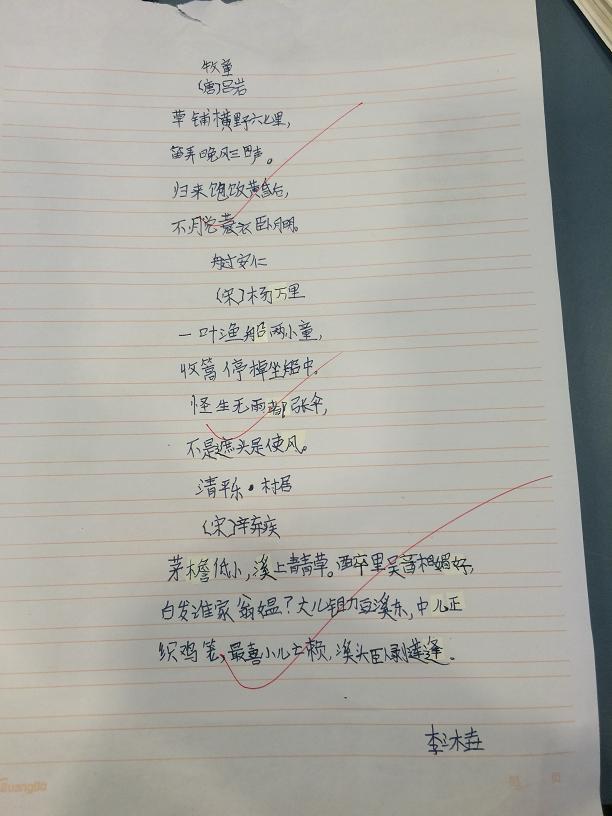 牧童
(唐)吕岩
草铺横野六七里,
笛弄晚风三四声。
归来饱饭黄昏后,
不脱蓑衣卧月明。
舟过安仁
(宋)杨万里
一叶渔船两小童,
收篙停棹坐船中。
怪生无雨都张伞,
不是遮头是使风。
清平乐·村居
(宋)辛弃疾
茅檐低小,溪上青青草。酉卒里吴音相媚好,
白发谁家翁媪?大儿锄豆溪东,中儿正
织鸡笼,最喜小儿亡赖,溪头卧剥莲蓬。
Guangbo